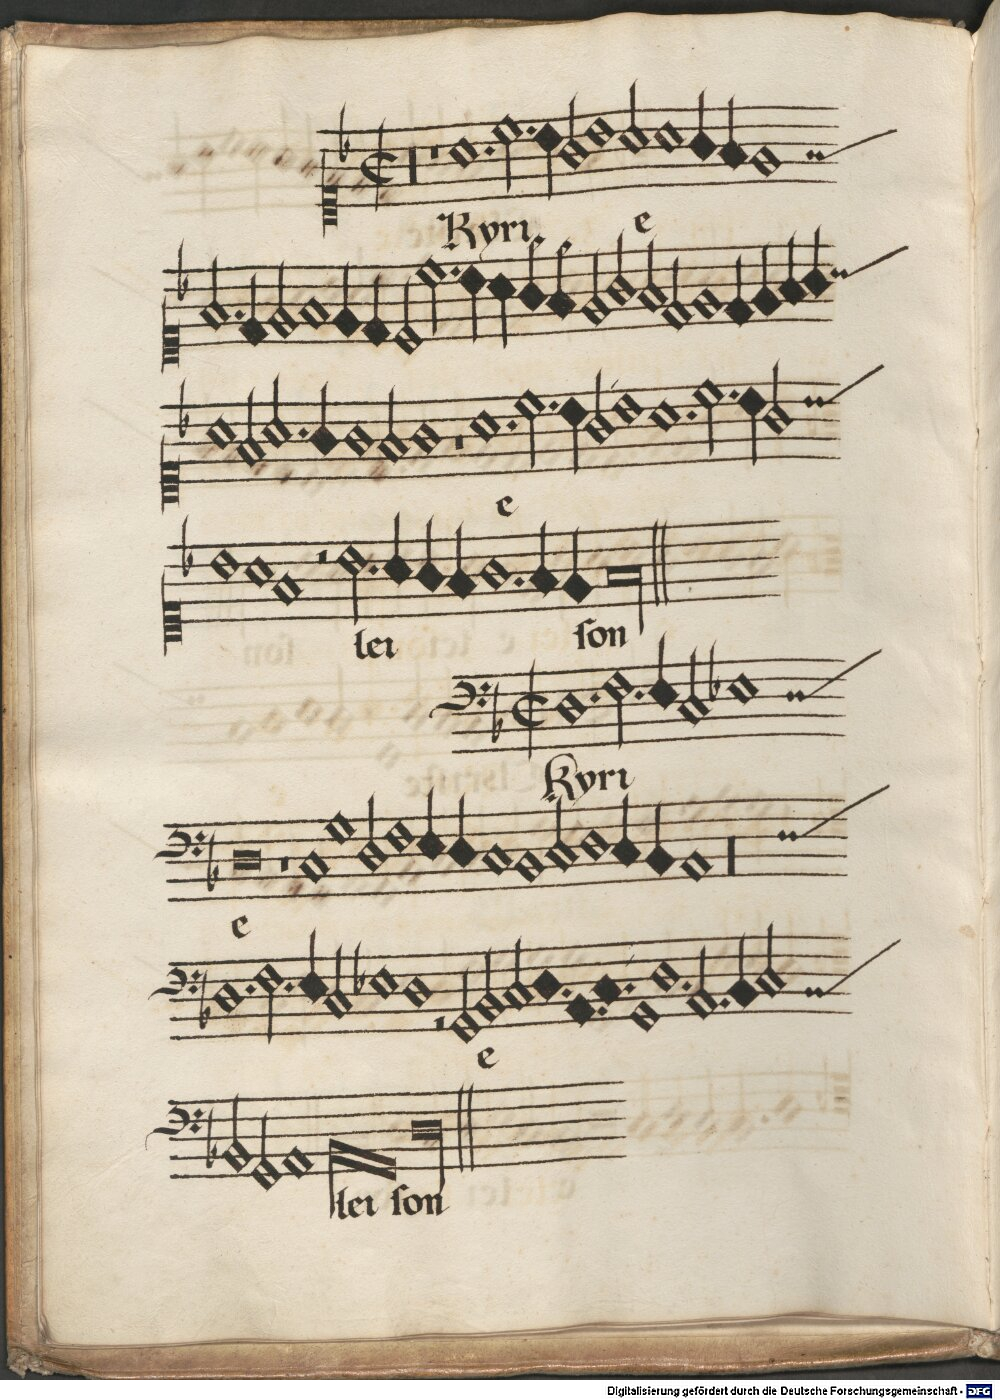 Kyri e
e
lei son
Kyri
e
e
lei son
Digitalisierung gefördert durch die Deutsche Forschungsgemeinschaft - DFG